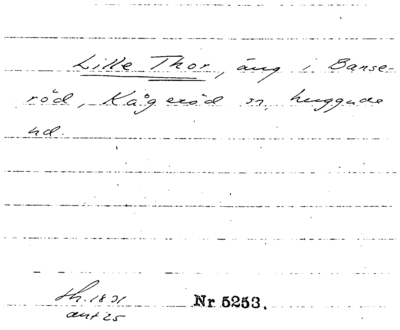 Lille Thor, äng i Banse-
röd, Kågeröd sn, huggude
ud.
th. 1831
ant 25
Nr 5253.